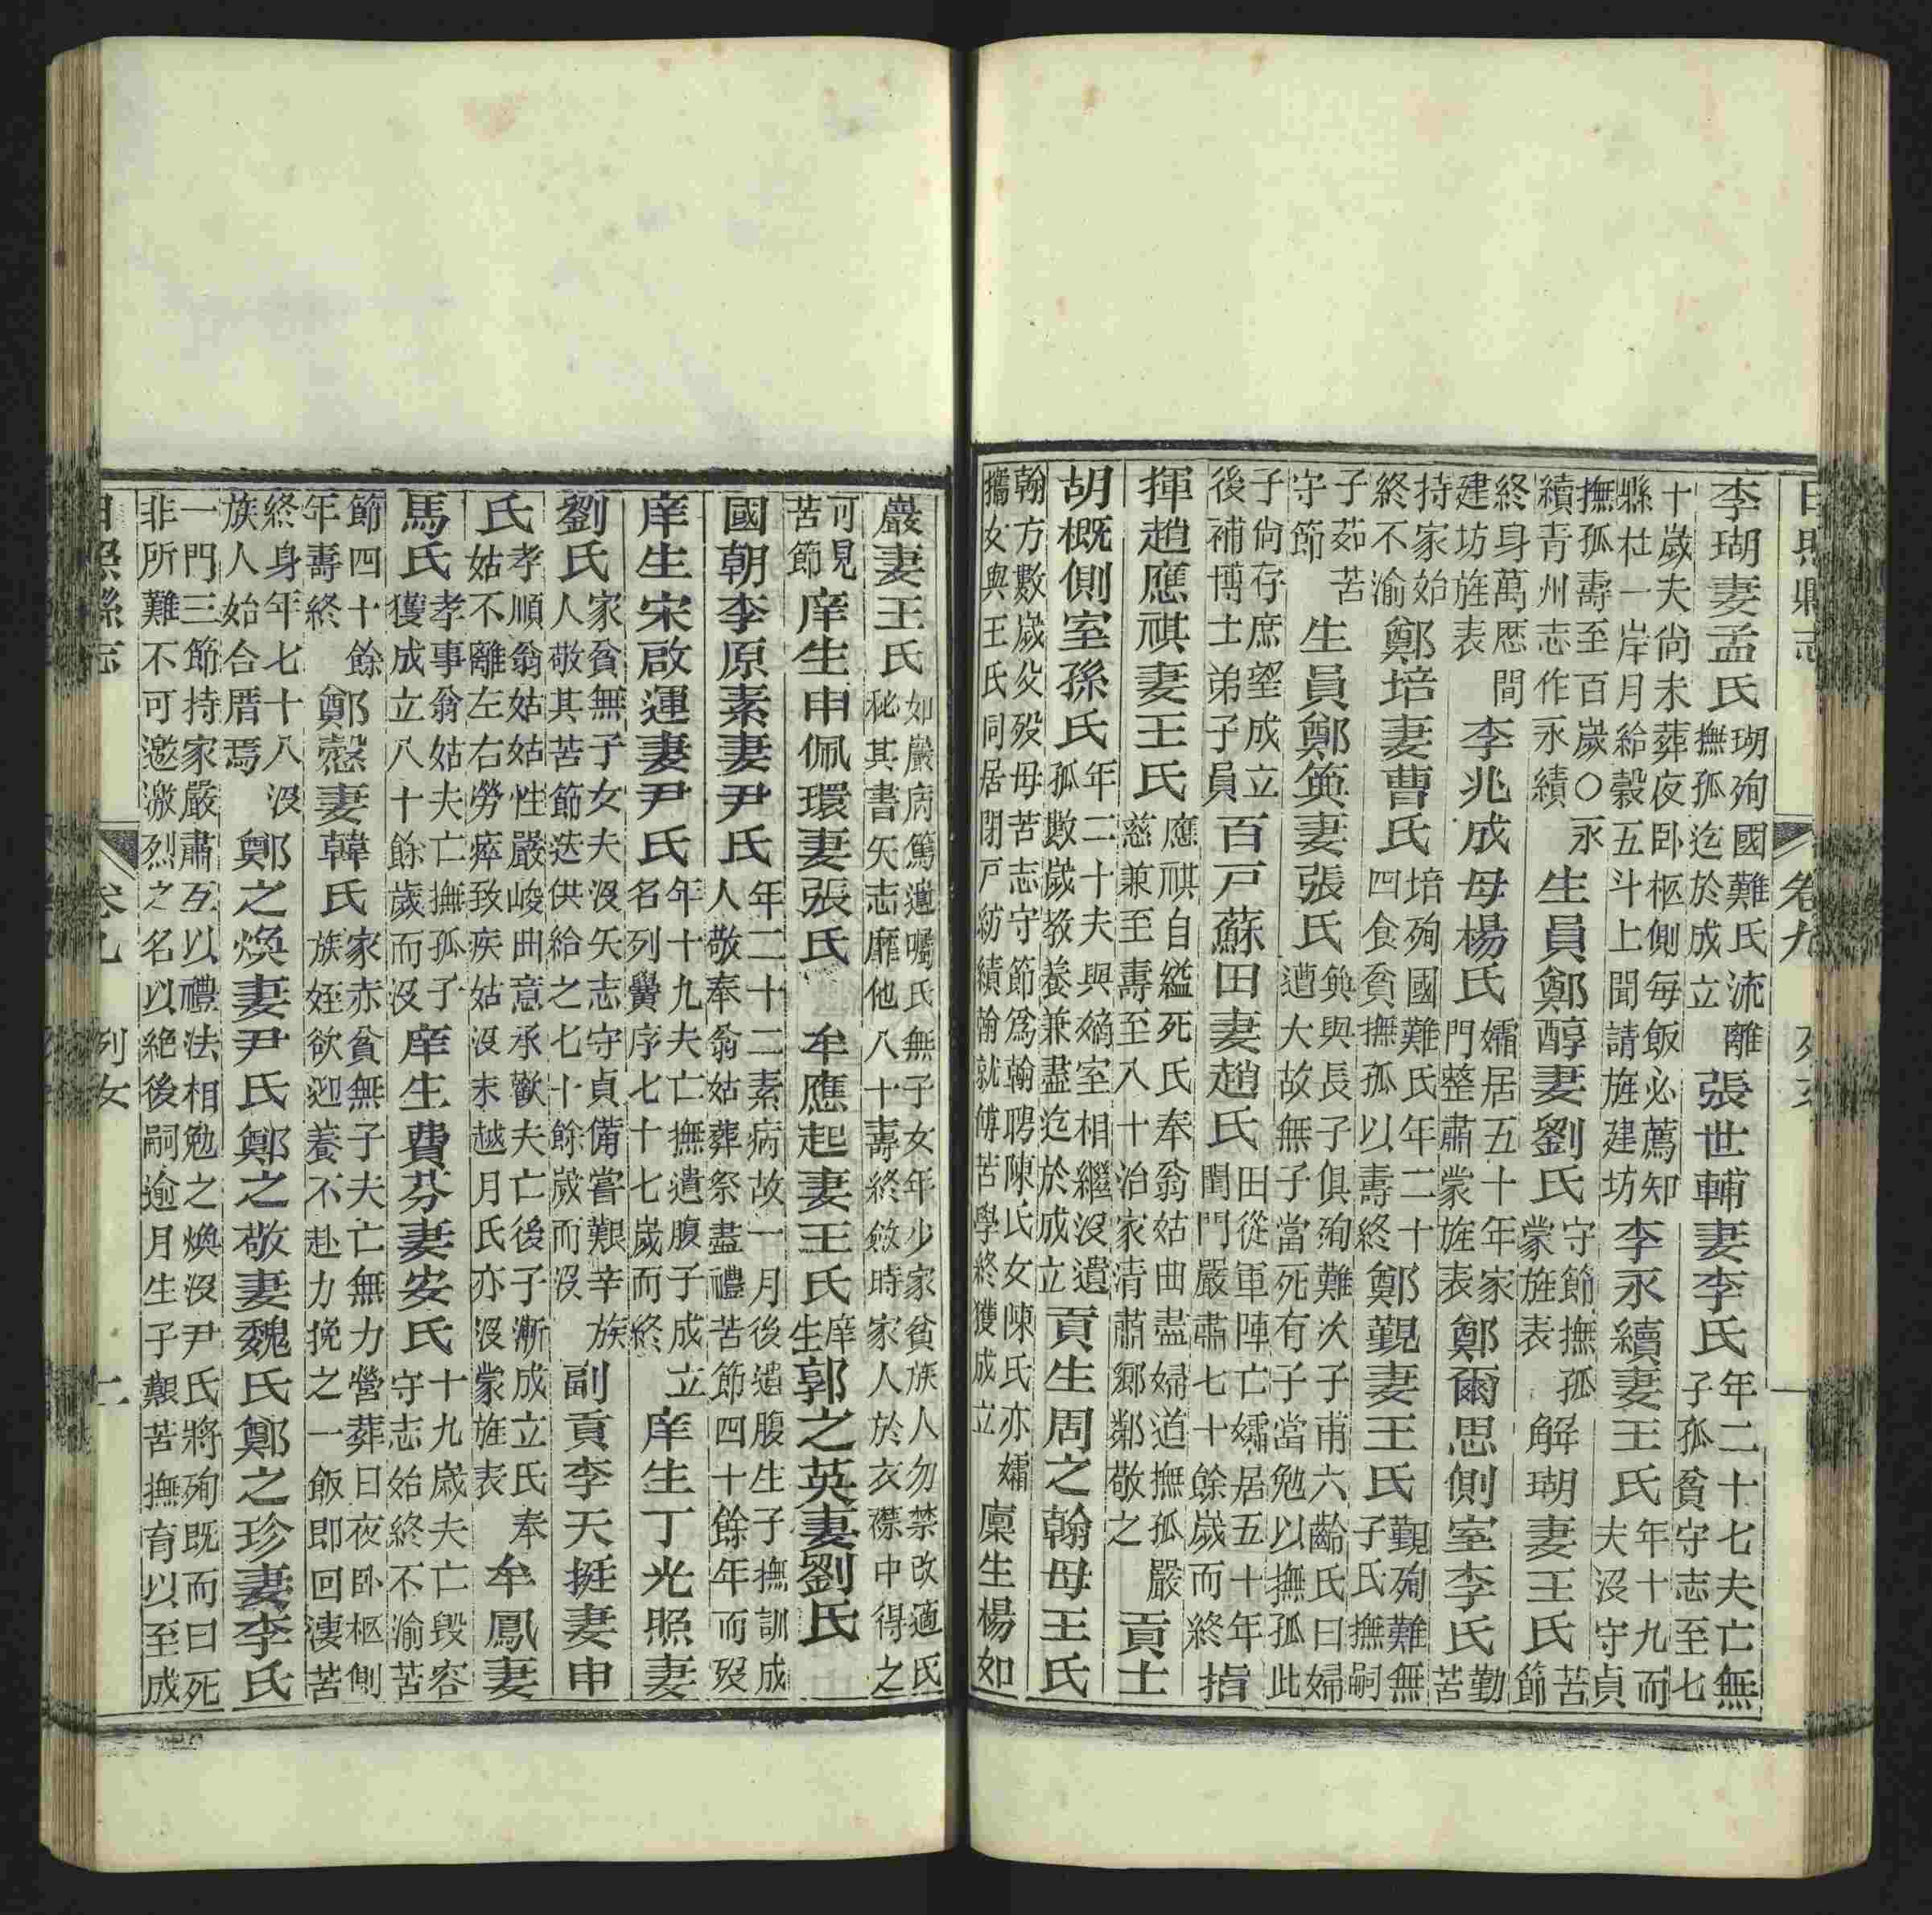 日照縣志 卷九 列女
李瑚妻孟氏瑚殉國難氏流離撫孤迄於成立張世輔妻李氏年二十七夫亡無子孤貧守志至七
十歲夫尚未葬夜卧柩側每飯必薦知縣杜一岸月給穀五斗上聞請旌建坊李永續妻王氏年十九而夫沒守貞
撫孤壽至百歲○永續青州志作永績生員鄭醇妻劉氏守節撫孤蒙旌表解瑚妻王氏苦節
終身萬歷間建坊旌表李兆成母楊氏孀居五十年家門整肅蒙旌表鄭爾思側室李氏勤苦
持家始終不渝鄭培妻曹氏培殉國難氏年二十四食貧撫孤以壽終鄭覲妻王氏覲殉難無子氏撫嗣
子茹苦守節生員鄭筴妻張氏筴與長子俱殉難次子甫六齡氏曰婦遭大故無子當死有子當勉以撫孤此
子尚存庶望成立後補博士弟子員百戸蘇田妻趙氏田從軍陣亡孀居五十年閨門嚴肅七十餘歲而終指
揮趙應祺妻王氏應祺自縊死氏奉翁姑曲盡婦道撫孤嚴慈兼至壽至八十治家清肅鄉鄰敬之貢士
胡概側室孫氏年二十夫與嫡室相繼沒遺孤數歲教養兼盡迄於成立貢生周之翰母王氏
翰方數歲父殁母苦志守節為翰聘陳氏女陳氏亦孀攜女與王氏同居閉戸紡績翰就傅苦學終獲成立廩生楊如
巖妻王氏如巖病篤遺囑氏無子女年少家貧族人勿禁改適氏秘其書矢志靡他八十壽終斂時家人於衣襟中得之
可見苦節庠生申佩環妻張氏牟應起妻王氏庠生郭之英妻劉氏
國朝李原素妻尹氏年二十二素病故一月後遺腹生子撫訓成人敬奉翁姑葬祭盡禮苦節四十餘年而歿
庠生宋啟運妻尹氏年十九夫亡撫遺腹子成立名列黌序七十七歲而終庠生丁光照妻
劉氏家貧無子女夫沒矢志守貞備嘗艱辛族人敬其苦節迭供給之七十餘歲而沒副貢李天挺妻申
氏孝順翁姑姑性嚴峻曲意承歡夫亡後子漸成立氏奉姑不離左右勞瘁致疾姑沒未越月氏亦沒蒙旌表牟鳳妻
馬氏孝事翁姑夫亡撫孤子獲成立八十餘歲而沒庠生費芬妻安氏十九歲夫亡毀容守志始終不渝苦
節四十餘年壽終鄭愨妻韓氏家赤貧無子夫亡無力營葬日夜卧柩側族姪欲迎養不赴力挽之一飯即回淒苦
終身年七十八沒族人始合厝焉鄭之煥妻尹氏鄭之敬妻魏氏鄭之珍妻李氏
一門三節持家嚴肅互以禮法相勉之煥沒尹氏將殉既而曰死非所難不可邀激烈之名以絕後嗣逾月生子艱苦撫育以至成
日照縣志 卷九 列女 十一